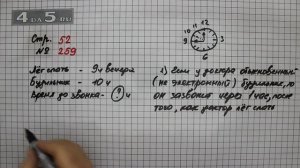 4 ДА 5.RU
Стр. 52
№ 259
Лёг спать - 9ч вечера
Будильник - 10 ч
Время до звонка - ? ч
12
11
10
9
3
6
1) Если у доктора обыкновенный
(не электронный) будильник, то
он зазвонит через 1 час, после
того, как доктор лёг спать